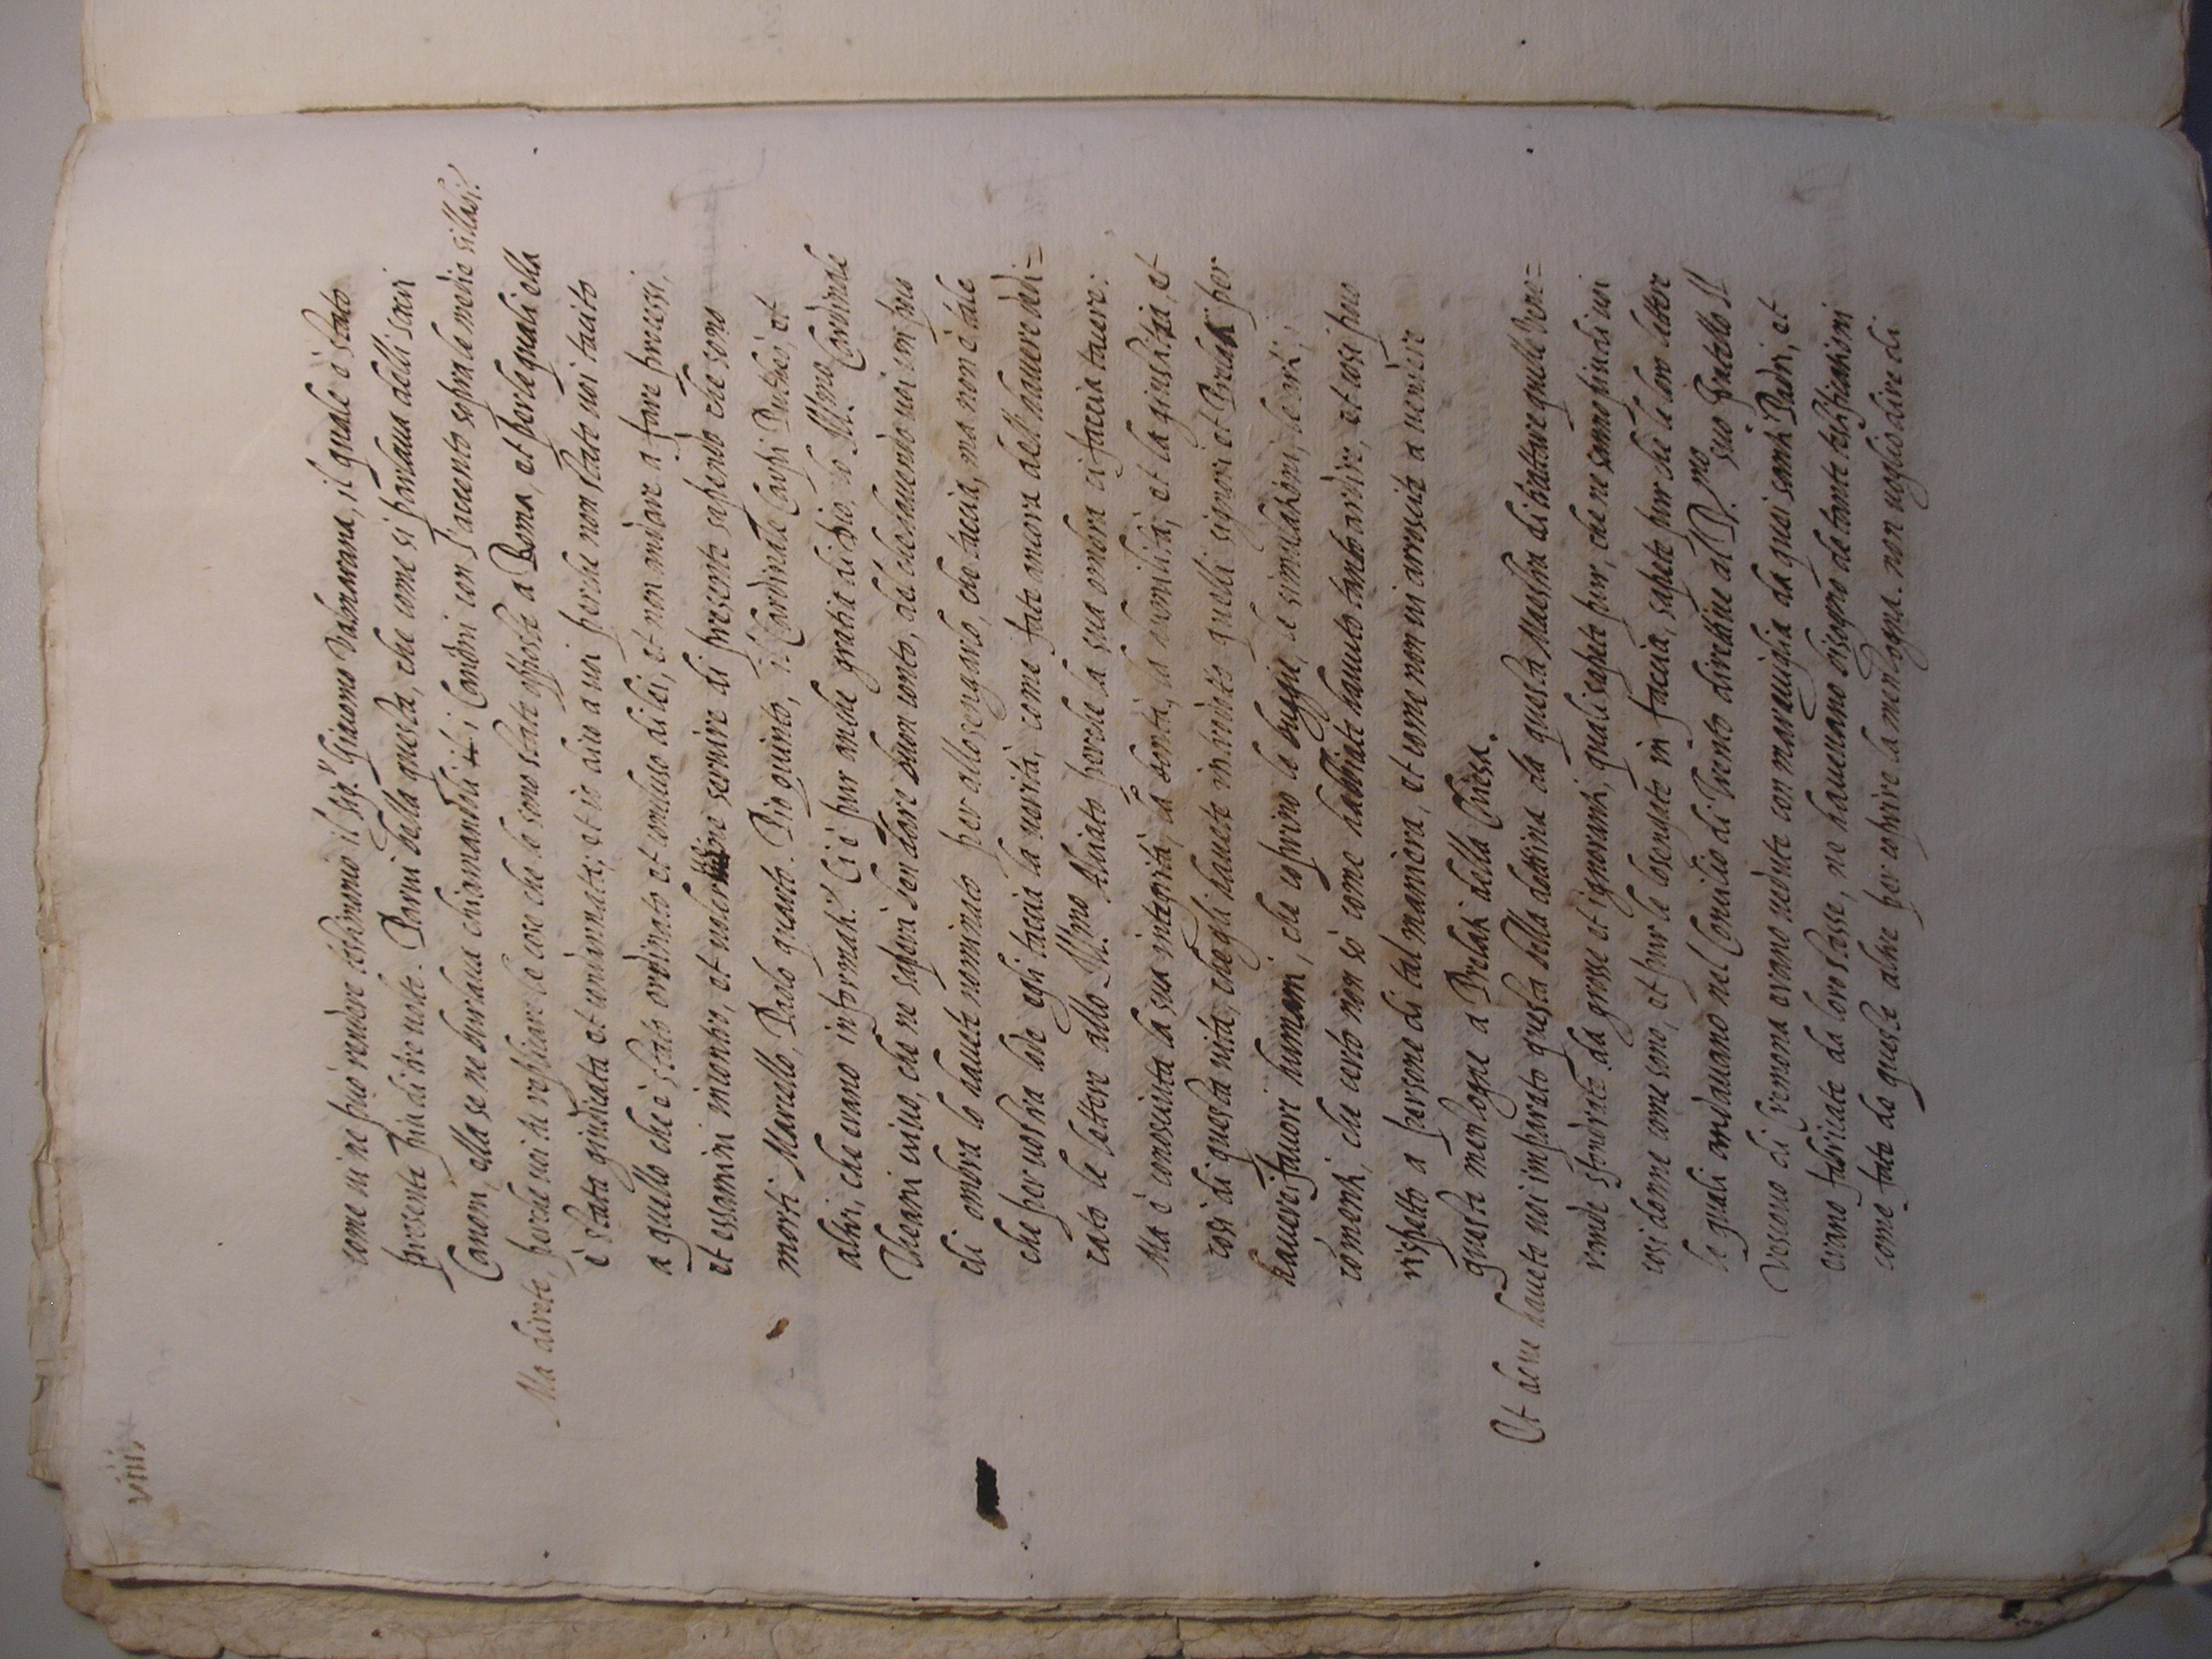 viiii
come ui ne può rendere testimonio il Sig.r Giacomo Valmarana, il quale è stato
presente piu di tre uolte. Parui bella questa, che come si parlaua delli sacri
Canoni, ella se ne burlaua chiamandoli i Canòni con l'accento sopra la media sillaba?
Ma direte, perche uoi ne replicare le cose che le sono state opposte a Roma, et per le quali ella
è stata giudicata et condannata; et io dico a uoi perche non state uoi tacito
a quello che è stato ordinato et concluso di lei, et non andare a fare processi,
et essamini incontro, et uolerui seruire di presente sapendo che sono
morti Marcello, Paolo quarto. Pio quinto, il Cardinale Carpi Puttheo, et
altri, che erano informati? Ci è pur anche gratia di Dio, lo Ill.mo Cardinale
Theatini uiuo, che ne saperà ben dare buon conto, del che hauendo uoi un puo
di ombra lo hauete nominato per allosengarlo, che taccia, ma non è tale
che per uostra lode egli taccia la uerità, come fate ancora dell'hauere dedi=
cato le lettere allo Ill.mo Alciato perche la sua ombra ui faccia tacere:
Ma è conosciuta la sua integrità, la bontà, la humilità, et la giustitia, et
cosi di questa uita, che gli hauete introdutto quelli signori et Prelati per
hauere fauore humani, che coprino le buggie, le simulationi, le arti;
comenti, che certo non sò come habbiate hauuto tanto ardire, et cosi puo
rispetto a persone di tal maniera, et come non ui arrossite a uendere
queste menzogne a Prelati della Chiesa.
Et doue hauete uoi imparato questa bella dottrina da questa Maestra di trattare quelle Vene=
rande sfondrate da grosse et ignoranti, quali sapete pur, che ne sanno piu di uoi
cosi donne come sono, et pur le losengate in faccia, sapete pur che le loro lettere
le quali andauano nel Concilio di Trento directiue al R.mo suo fratello il
Vescouo di Cremona erano uedute con marauiglia da quei santi Padri, et
erano fabricate da loro stesse, ne haueuano bisogno de tante testificationi
come fate de queste altre per coprire la menzogna. non uoglio dire di